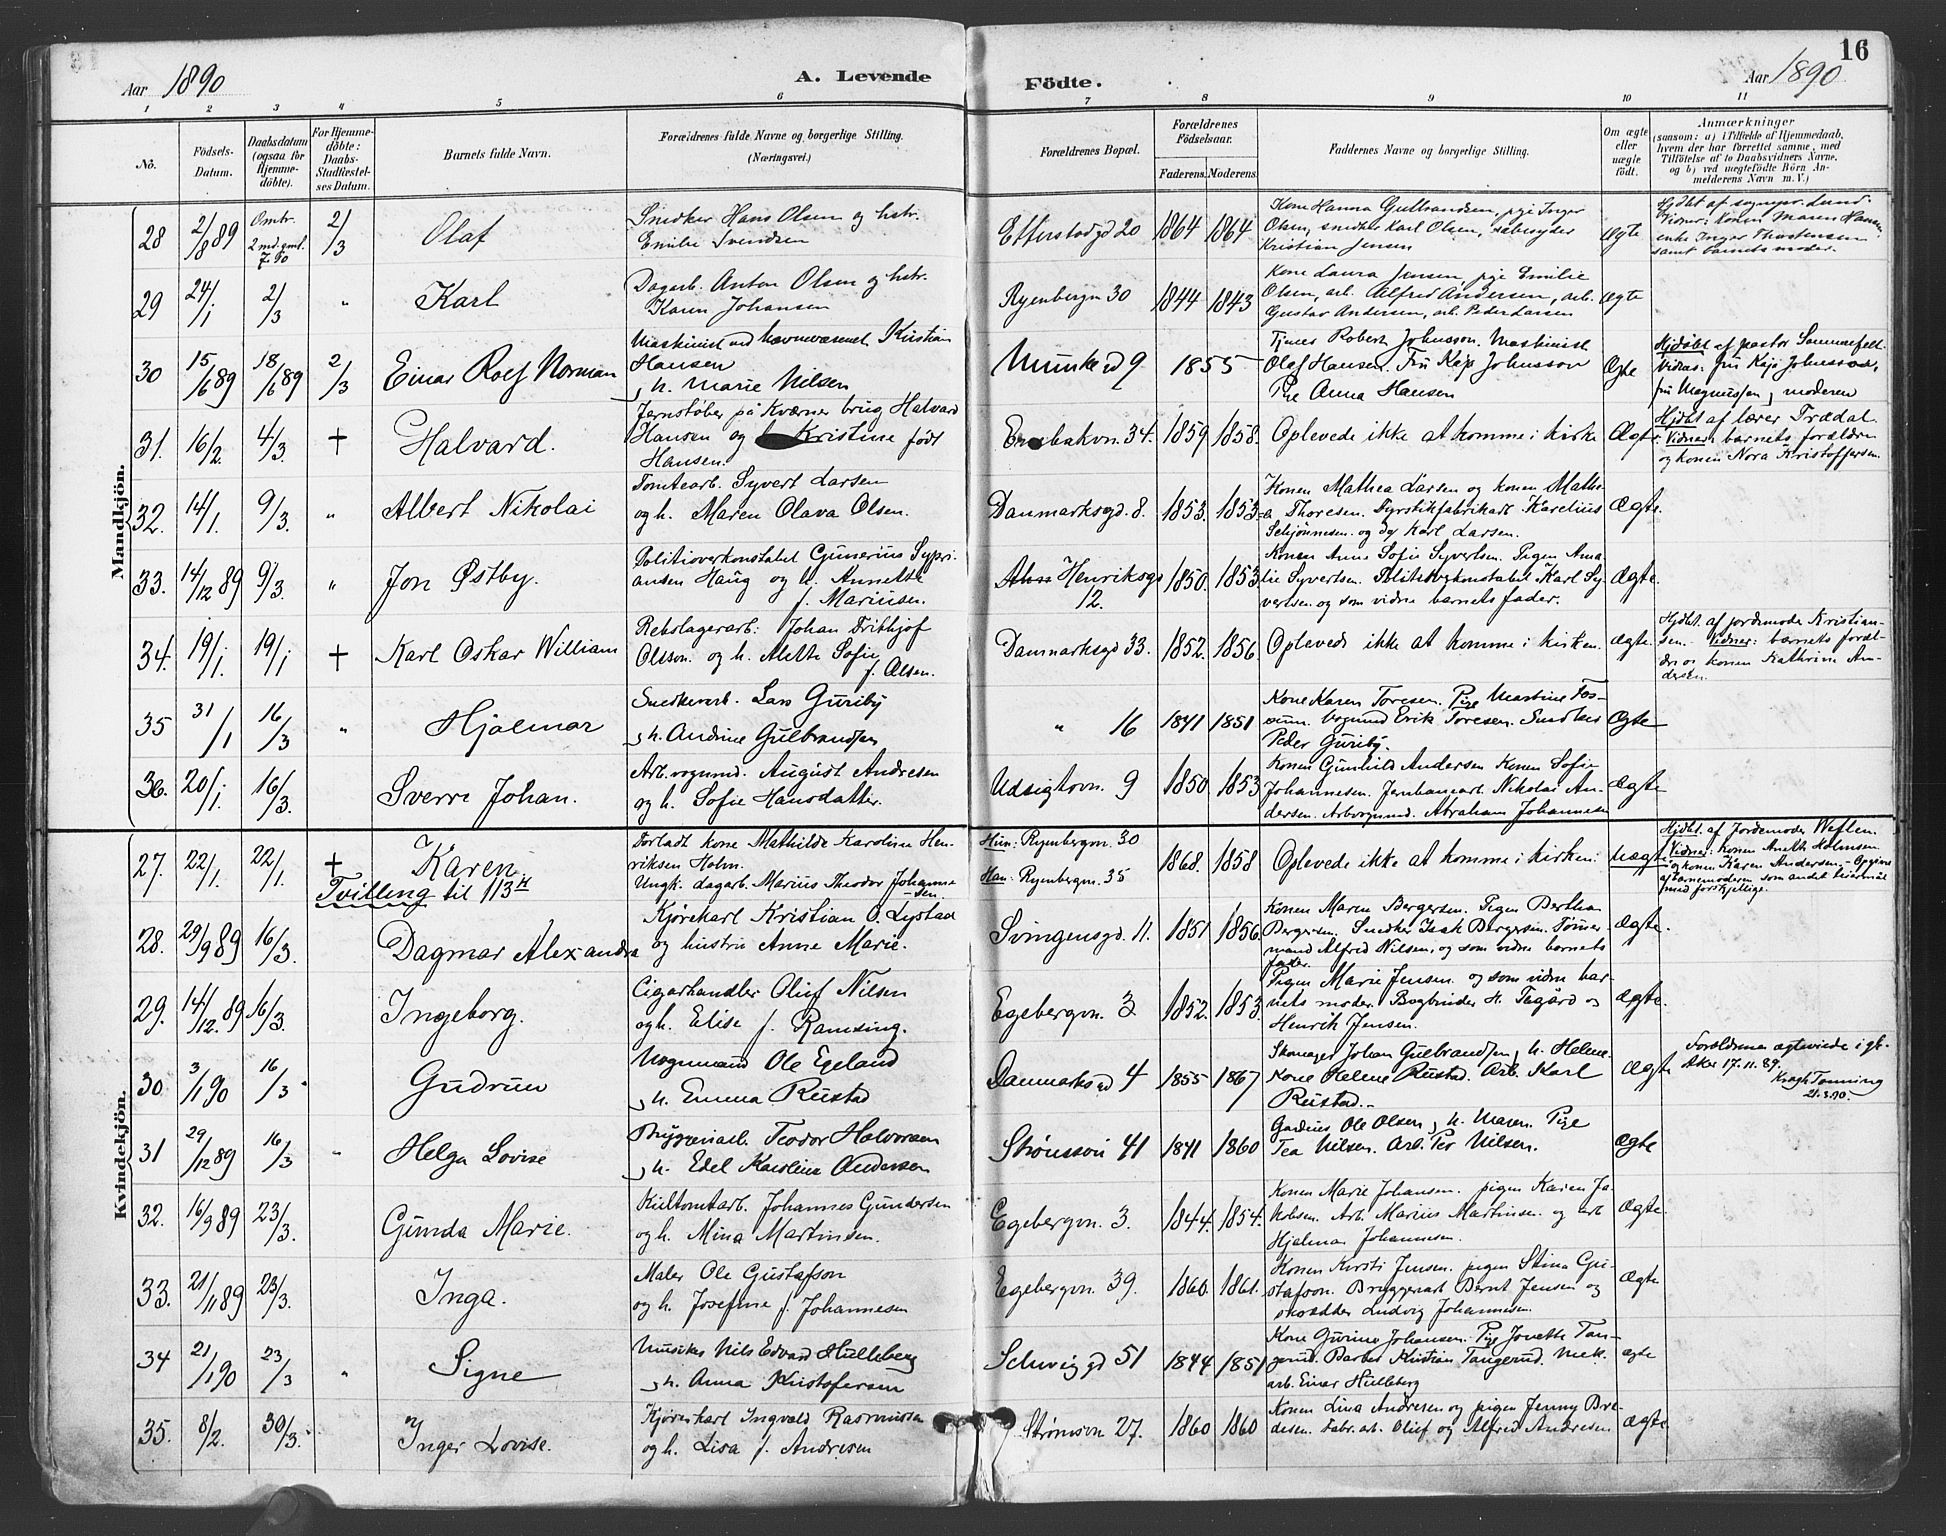 16
Aar 1890
A. Levende Födte.
Aar 1890
1 2 3 4 5 6 7 8 9 10 11
No.
Födsels-Datum.
Daabsdatum (ogsaa for Hjemme-döbte).
For Hjemme-döbte: Daabs-Stadfæstel-ses Datum.
Barnets fulde Navn.
Forældrenes fulde Navne og borgerlige Stilling.
(Næringsvei.)
Forældrenes Bopæl.
Forældrenes Födselsaar.
Faderens. Moderens.
Faddernes Navne og borgerlige Stilling.
Om ægte eller uægte födt.
Anmærkninger
(saasom: a) i Tilfælde af Hjemmedaab, hvem der har forrettet samme, med Tilföielse af to Daabsvidners Navne, og b) ved uegtefödte Börn An-melderens Navn m. V.)
Mandkjön.
28 2/8 89 2/3 Olaf
Snedker Hans Olsen og hstr.
Emilie Svendsen
Etterstadgd 20 1864 1864
Kone Hanna Gulbrandsen, pige Inger
Olsen, snedker Karl Olsen,
Kristian Jensen
Ægte
Vidner: Konen Maren Hansen
enke Inger Thorstensen
samt barnets moder.
29 24/1 2/3 " Karl
Dagarb. Anton Olsen og hstr.
Karen Johansen
Ryenbergvn 30 1844 1843
Kone Laura Jensen, pige Emilie
Olsen, arb. Alfred Andersen, arb.
Gustav Andersen, arb. Peder Larsen
Ægte
30 15/6 89 18/6 89 2/3 Einar Rolf Norman
Maskinist ved Havnevæsenet Kristian
Hansen
og h. Marie Nilsen
Munkegd 9 1855
Robert Johnsson. Maskinist
Olaf Hansen. Fru Kaja Johnsson
Pige Anna Hansen
Ægte
Hjdøbt af pastor Sommerfelt
Vidner: fru Kaja Johnsson,
fru Magnussen, moderen
31. 16/2. 4/3. † Halvard.
Jernstøber på Kværner brug Halvard
Hansen og Kristine født
Hansen.
Enebakvn. 34. 1859 1858.
Oplevede ikke at komme i kirke
Ægte.
Hjdbt. af lærer Trædal.
Vidner: barnets forældre
og konen Nora Kristoffersen.
32. 14/1. 9/3. " Albert Nikolai
Tomtearb. Syvert Larsen
og h. Maren Olava Olsen.
Danmarksgd. 8. 1853. 1853
Konen Mathea Larsen og konen Math-
a Thoresen. Fyrstikfabrikarb Karelius
Schjønnesen. og Karl Larsen.
Ægte.
33. 14/12 89 9/3. " Jon Østby.
Politioverkonstabel Gunerius Sypri-
ansen Haug og h. Annette
f. Mariusen.
Henriksgd
12.
1850. 1853.
Konen Anne Sofie Syvertsen. Pigen Ama-
lie Syvertsen. Politioverkonstabel Karl Sy-
vertsen. og som vidne barnets fader.
Ægte.
34. 19/1. 19/1 † Karl Oskar William
Rebslagerarb: Johan Frithjof
Olsson. og h. Alette Sofie
f. Olsen.
Danmarksgd 33. 1852. 1856.
Oplevede ikke at komme i kirken.
Ægte.
Hjdbt. af jordemoder Kristian-
sen. Vidner: barnets foræl-
dre og konen Kathrine An-
dersen.
35 31/1 16/3 " Hjalmar
Snedkerarb. Lars Guriby
og h. Andrine Gulbrandsen
" 16 1841 1851
Kone Karen Toresen. Pige Martine Fos-
sum. Vognmd Erik Toresen. Snedker
Peder Guriby.
Ægte
36. 20/1. 16/3. Sverre Johan.
Arb. vognmd. August Andresen
og h. Sofie Hansdatter.
Udsigtsvn. 9 1850. 1853.
Konen Gunhild Andersen Konen Sofie
Johannesen. Jernbanearb. Nikolai An-
dersen. Arbvognmd. Abraham Johannesen
Ægte.
Kvindekjön.
27. 22/1. 22/1. † Karen
Tvilling til 113
Forladt kone Mathilde Karoline Hen-
riksen Holm.
Ungk. dagarb. Marius Theodor Johanne-
sen.
Hun: Ryenbergvn. 30
Han: Ryenbergvn. 35
1868. 1858.
Oplevede ikke at komme i kirken:
Uægte
Hjdbt. af Jordemoder Weflen.
Vidner: Konen Anette Holmsen
og konen Karen Andersen. - Opgives
af barnemoderen som andet leiermål
med forskjellige.
28. 29/9 89 16/3. Dagmar Alexandra
Kjørekarl Kristian O. Lystad
og hustru Anne Marie.
Svingensgd. 11. 1851 1856.
Konen Maren Bergersen. Pigen Berthea
Bergersen. Snedker Isak Bergersen. Tømmer-
mand Alfred Nilsen, og som vidne barnets
fader.
Ægte.
29. 14/12. 89 16/3. Ingeborg.
Cigarhandler Oluf Nilsen
og h. Elise f. Ramsing.
Egebergvn. 3 1852. 1853.
Pigen Marie Jensen. og som vidne bar-
nets moder. Bogbinder H. Tagard og
Henrik Jensen.
Ægte.
30 3/1 90 16/3 Gudrun
Vognmand Ole Egeland
og h. Emma Rustad
Danmarksgd 4 1855 1867
Skomager Johan Gulbrandsen og h. Helene.
Kone Helene Rustad. Arb. Karl
Rustad.
Ægte
Forældrene ægteviede i gl.
Aker 17.11.89.
Krag Tønning
21.3.90.
31 29/12 89 16/3 " Helga Lovise
Bryggeriarb. Teodor Halvorsen
og h. Edel Karoline Andersen
Strømsvn 41 1841 1860
Gardius Ole Olsen og h. Maren. Pige
Tea Nilsen. Arb. Per Nilsen.
Ægte
32. 16/9 89 23/3. Gunda Marie.
Kultomtarb. Johannes Gundersen
og h. Mina Martinsen.
Egebergvn. 3. 1844. 1854.
Konen Marie Johansen. pigen Karen Ja-
kobsen. Arb. Marius Martinsen. og arb
Hjalmar Johannesen.
Ægte.
33. 21/11 89 23/3. Inga.
Maler Ole Gustafson
og h. Josefine f. Johannesen
Egebergvn. 39. 1860. 1861.
Konen Kirsti Jensen. pigen Stina Gu-
stafson. Bryggeriarb Bernt Jensen og
Ludvig Johannesen.
Ægte
34 21/1 90 23/3 " Signe
Musiker Nils Edvard Hulleberg
og h. Anna Kristofersen
Schweigd 51 1844. 1851
Kone Gurine Johansen. Pige Jonette Tan-
gerud. Barber Kristian Tangerud. Mek.
arb. Einar Hulleberg
Ægte
35. 8/2. 30/3. Inger Lovise.
Kjørerkarl Ingvald Rasmussen
og h. Lisa f. Andresen
Strømsvn 27. 1860 1860
Konen Lina Andresen og pigen Jenny Bre-
desen. Fabr. arb. Oluf og Alfred Andresen
Ægte.